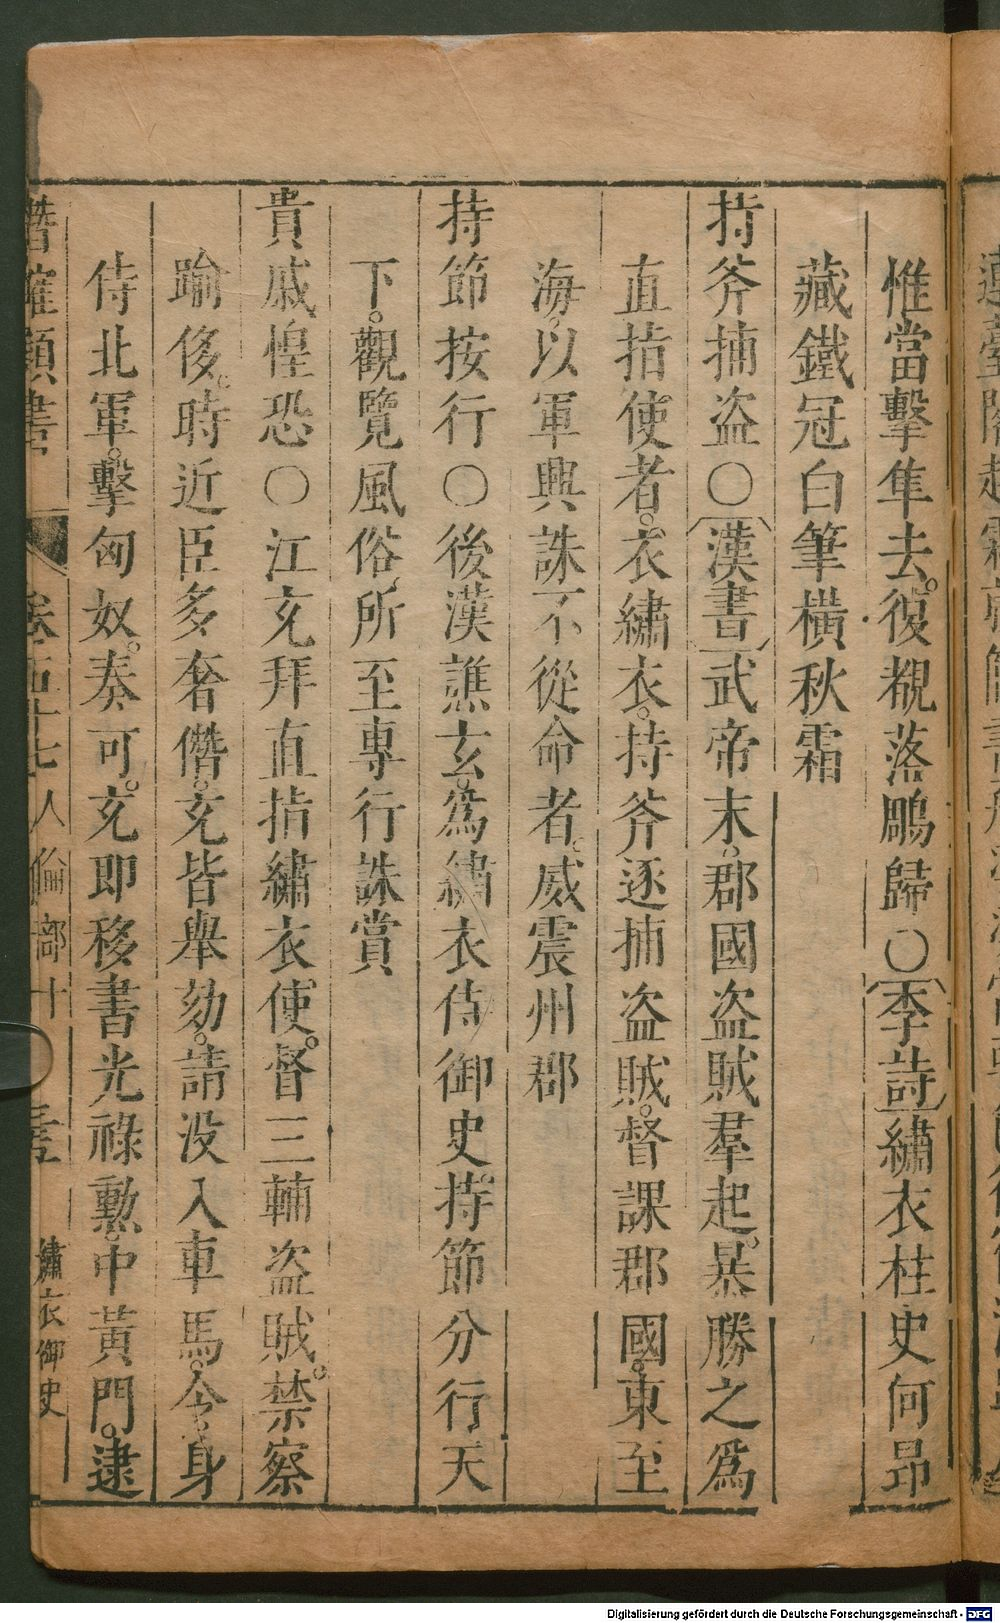 惟當擊隼去。復覩落鵰歸〇〔李詩〕繡衣柱史何昂
藏鐵冠白筆橫秋霜
持斧捕盗〇〔漢書〕武帝末。郡國盗賊羣起。暴勝之爲
直指使者。衣繡衣。持斧逐捕盗賊。督課郡國。東至
海。以軍興誅不從命者。威震州郡
持節按行〇後漢譙玄。爲繡衣侍御史。持節分行天
下。觀覽風俗。所至專行誅賞
貴戚惶恐〇江充拜直指繡衣使。督三輔盗賊。禁察
踰侈。時近臣多奢僭。充皆舉劾。請没入車馬。令身
侍北軍。擊匈奴。奏可。充即移書光祿勲。中黃門。逮
潛確類書 卷五十七 人倫部十 繡衣御史
Digitalisierung gefördert durch die Deutsche Forschungsgemeinschaft - DFG